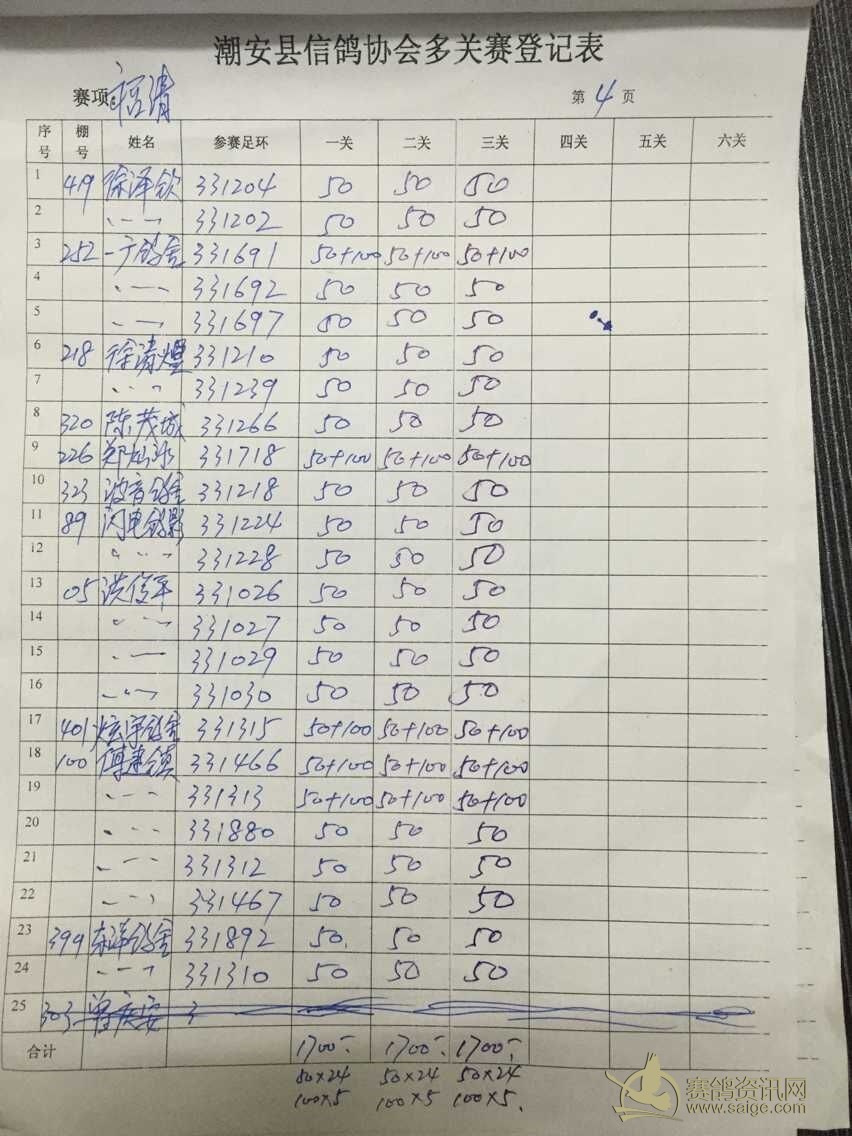 潮安县信鸽协会多关赛登记表
赛项:福清 第 4 页
序号 棚号 姓名 参赛足环 一关 二关 三关 四关 五关 六关
1 419 徐泽钦 331204 50 50 50
2 〃 — 〃 331202 50 50 50
3 252 一方鸽舍 331691 50+100 50+100 50+100
4 〃 — 〃 331692 50 50 50
5 〃 — 〃 331697 50 50 50
6 218 徐清煌 331210 50 50 50
7 〃 — 〃 331239 50 50 50
8 320 陈茂城 331266 50 50 50
9 226 331718 50+100 50+100 50+100
10 323 波音鸽舍 331218 50 50 50
11 89 闪电鸽影 331224 50 50 50
12 〃 — 〃 331228 50 50 50
13 05 洪俊平 331026 50 50 50
14 〃 — 〃 331027 50 50 50
15 〃 — 〃 331029 50 50 50
16 〃 — 〃 331030 50 50 50
17 401 炫宇鸽舍 331315 50+100 50+100 50+100
18 100 傅建镇 331466 50+100 50+100 50+100
19 〃 — 〃 331313 50+100 50+100 50+100
20 〃 — 〃 331880 50 50 50
21 〃 — 〃 331312 50 50 50
22 〃 — 〃 331467 50 50 50
23 399 东洋鸽舍 331892 50 50 50
24 〃 — 〃 331310 50 50 50
25 303 曾庆安 3
合计 1700- 1700- 1700-
50×24 50×24 50×24
100×5 100×5 100×5.
赛鸽资讯网
www.saige.com